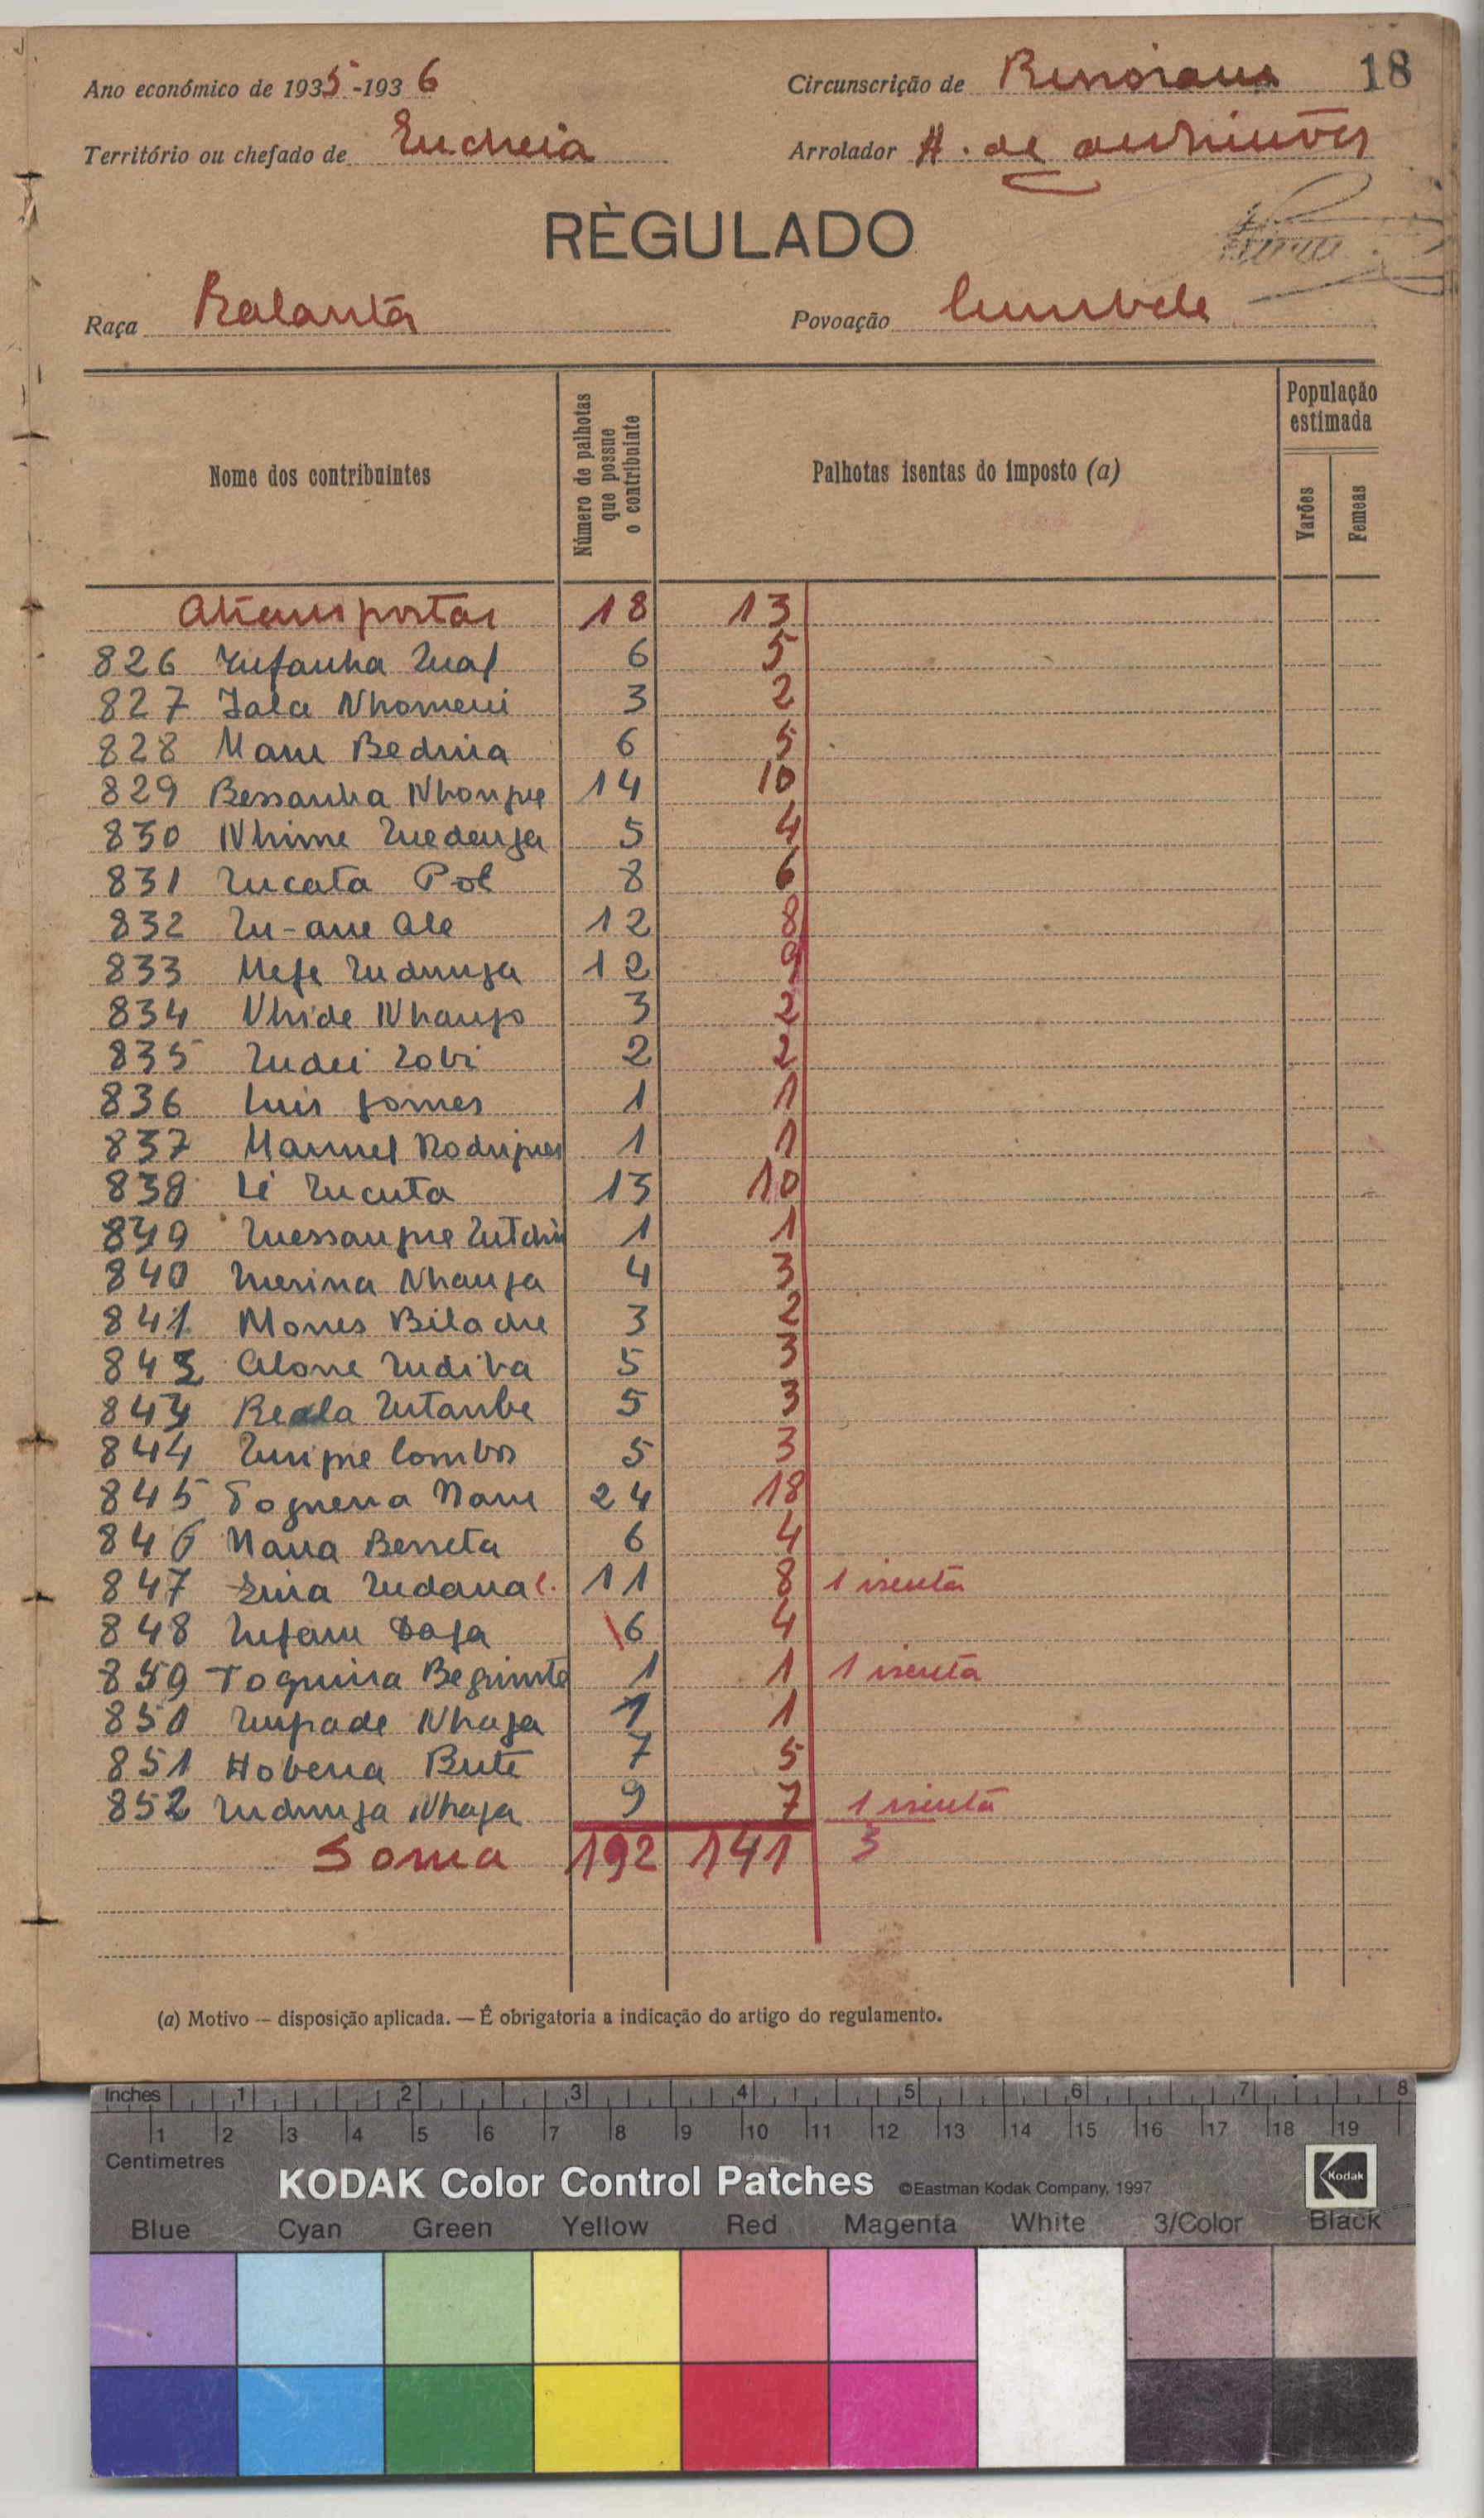 Ano económico de 1935-1936
Circunscrição de Bissoram 18
Território ou chefado de Encheia
Arrolador A. de
RÈGULADO
Raça Balanta
Povoação Cumbele
Nome dos contribuintes
Número de palhotas que possue o contribuinte
Palhotas isentas do imposto (a)
População estimada
Varões
Femeas
A transportar 18 13
826 Infanha Lual 6 5
827 Jala Nhomeni 3 2
828 Mam Bednia 6 5
829 Bessanha Nhongue 14 10
830 Nhime 5 4
831 Incata Pol 8 6
832 In-ane Ale 12 8
833 Mefe Indunga 12 9
834 Nhide Nhango 3 2
835 Indei Lobi 2 2
836 Luis Gomes 1 1
837 Manuel Rodrigues 1 1
838 Lé Incuta 13 10
839 1 1
840 Nhanga 4 3
841 Mones Biladne 3 2
842 Alone Indiba 5 3
843 Intambe 5 3
844 Combos 5 3
845 Toguena Nam 24 18
846 Nana Benneta 6 4
847 Indana C. 11 8 1 isenta
848 Infam Dafa 6 4
859 Toguina 1 1 1 isenta
850 Impade Nhaga 1 1
851 Hobena Bute 7 5
852 Indunga Nhaga 9 7 1 isenta
Soma 192 141 3
(a) Motivo — disposição aplicada. — É obrigatoria a indicação do artigo do regulamento.
Inches 1 2 3 4 5 6 7 8
1 2 3 4 5 6 7 8 9 10 11 12 13 14 15 16 17 18 19
Centimetres
KODAK Color Control Patches ©Eastman Kodak Company, 1997 Kodak
Blue Cyan Green Yellow Red Magenta White 3/Color Black